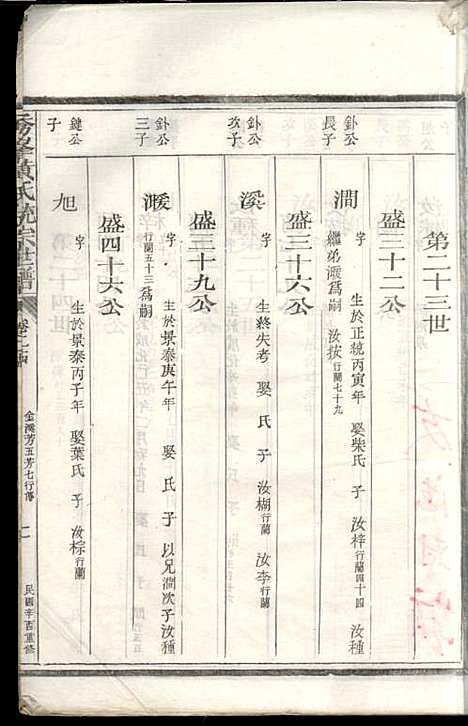 第二十三世
盛三十二公
釙公長子
澗 字 繼弟澱爲嗣 生於正統丙寅年 娶柴氏 子 汝梓行蘭四十四 汝按行蘭七十九
盛三十六公
釙公次子
溪 字 生終失考 娶 氏 子 汝楜行蘭 汝李行蘭
盛三十九公
釙公三子
字 行蘭五十三爲嗣 生於景泰庚午年 娶 氏 子 以兄澗次子汝種
盛四十六公
鍵公子
旭 字 生於景泰丙子年 娶葉氏 子 汝棕行蘭
黃氏統宗世譜
金溪芳五芳七行傳
民國辛酉重修